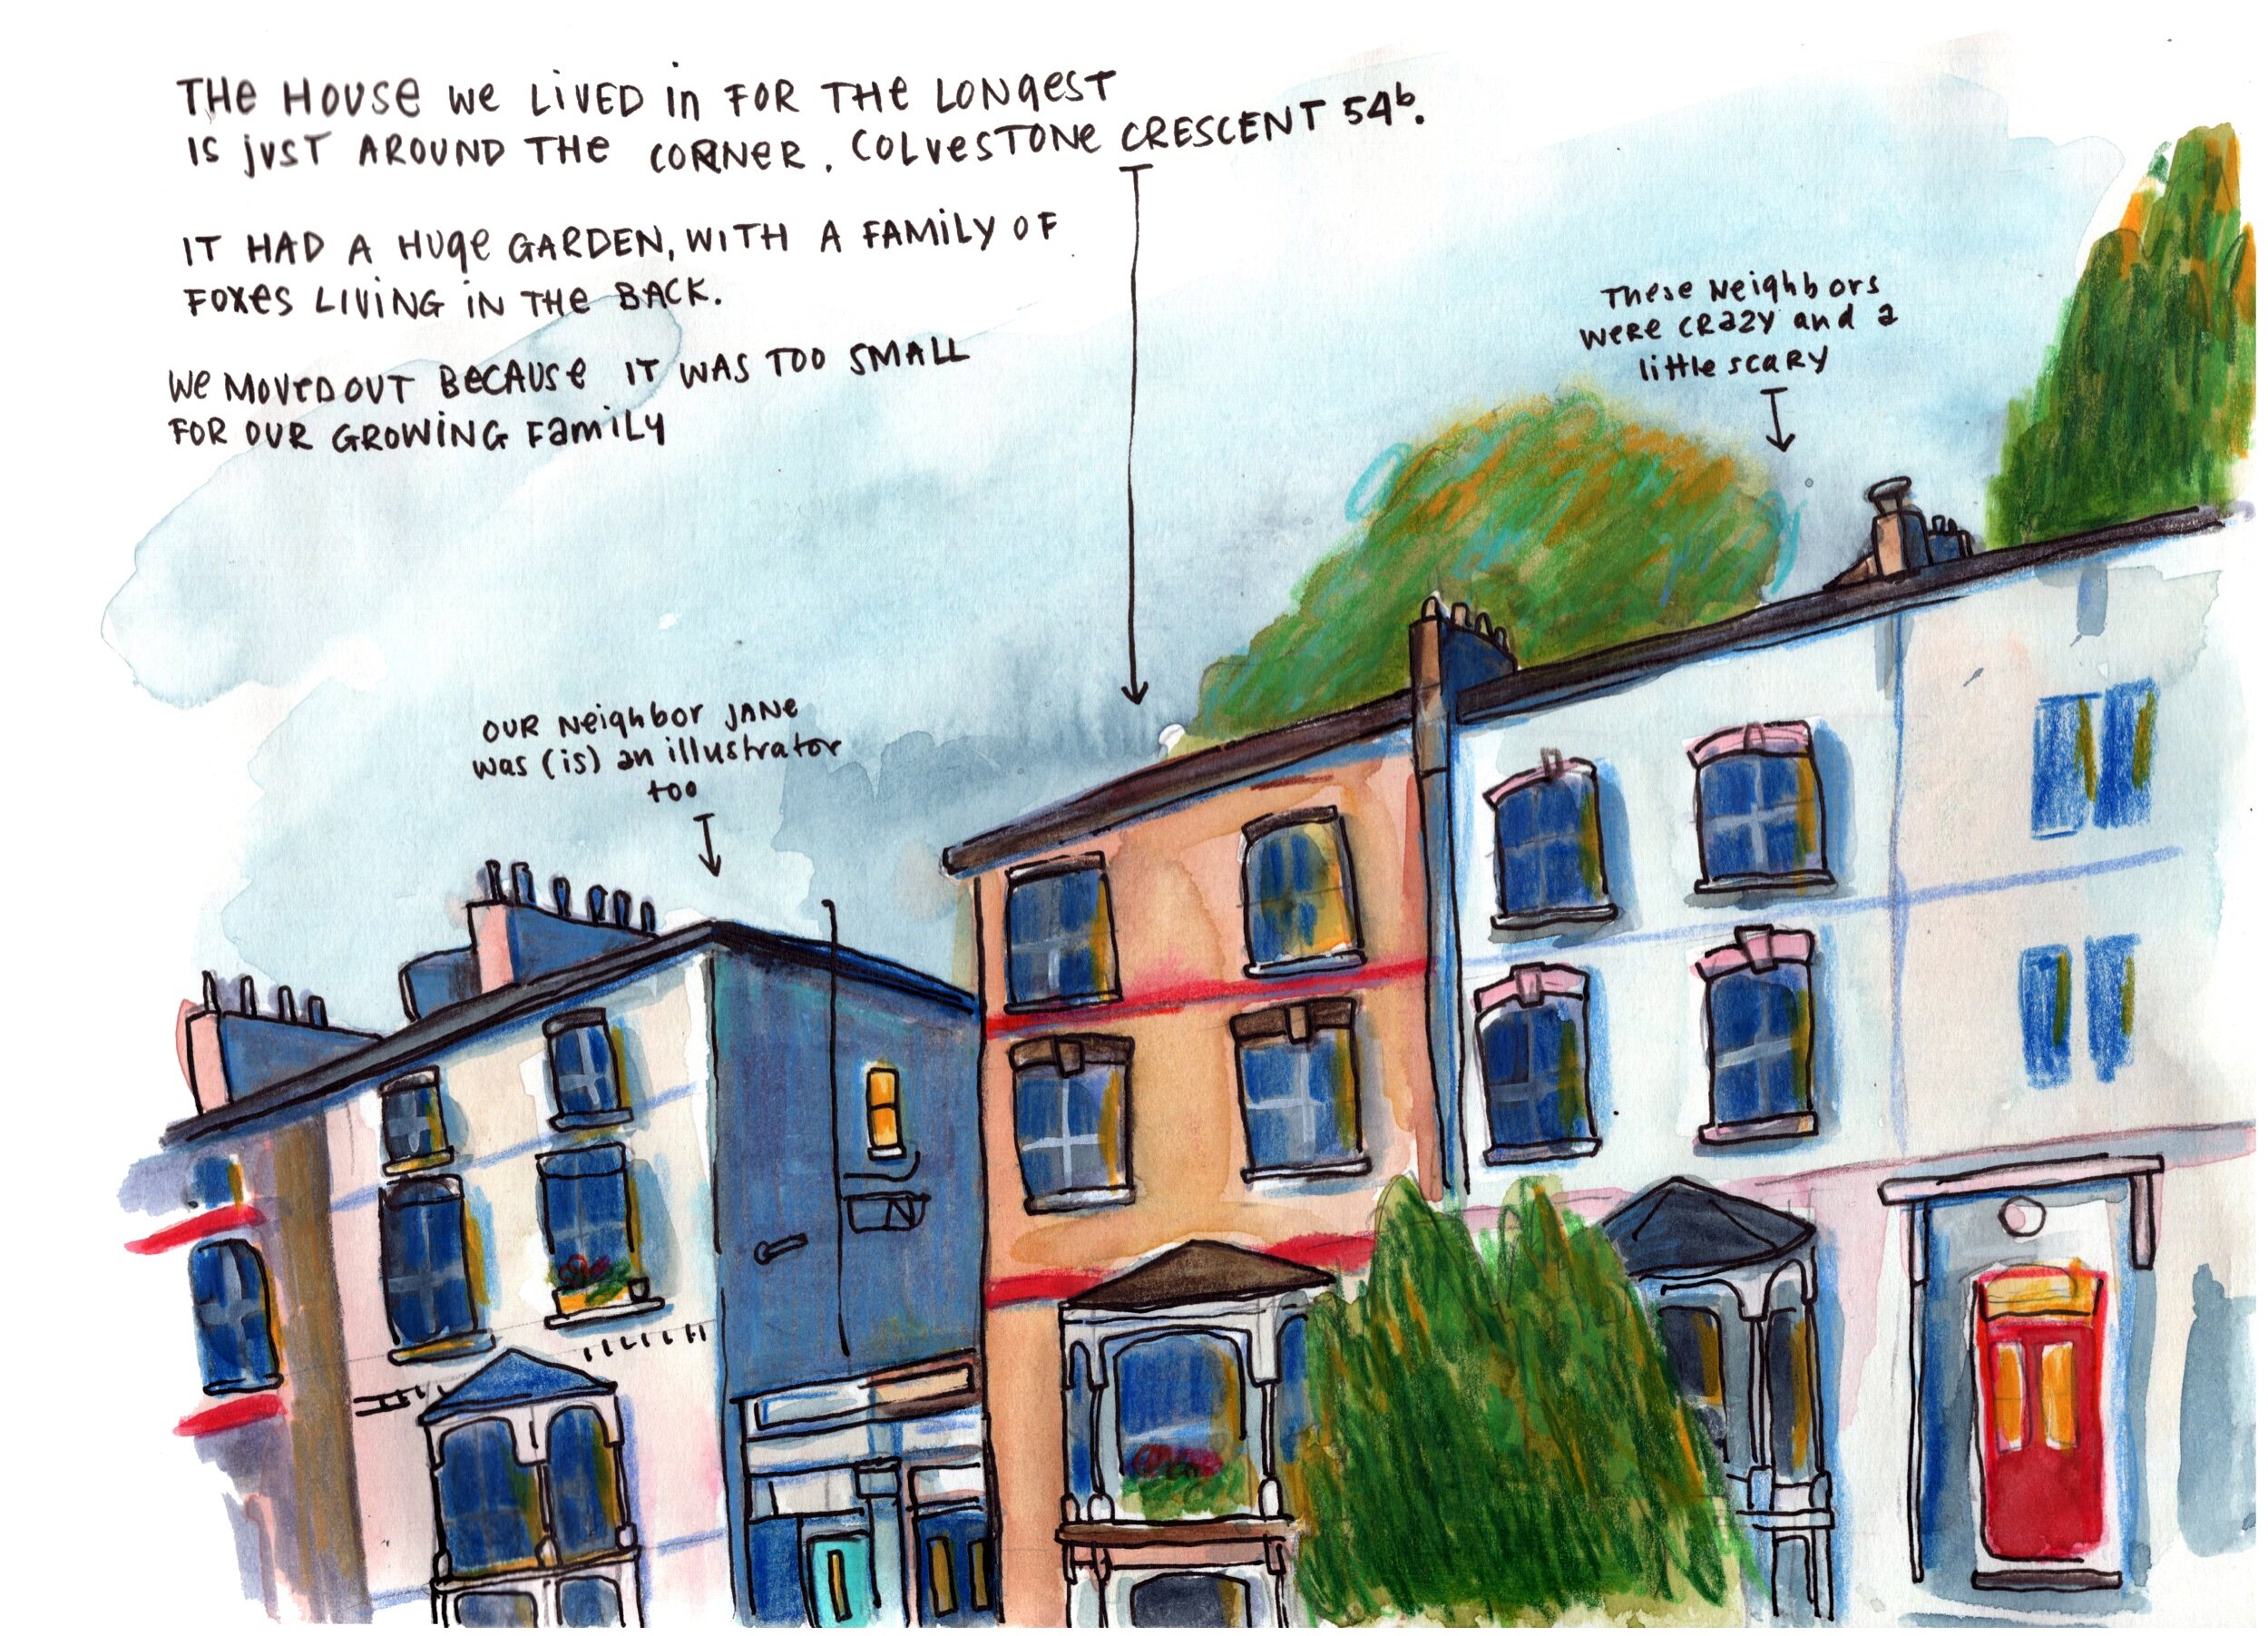 THE HOUSE WE LIVED in FOR THE LONGEST
IS jUST AROUND THE CORNER. COLVESTONE CRESCENT 54b.
IT HAD A HUGE GARDEN, WITH A FAMILY OF
FOXES LIVING IN THE BACK.
WE MOVED OUT BECAUSE IT WAS TOO SMALL
FOR OUR GROWING FAMILY
These Neighbors
were crazy and a
little scary
OUR Neighbor JANE
was (is) an illustrator
too